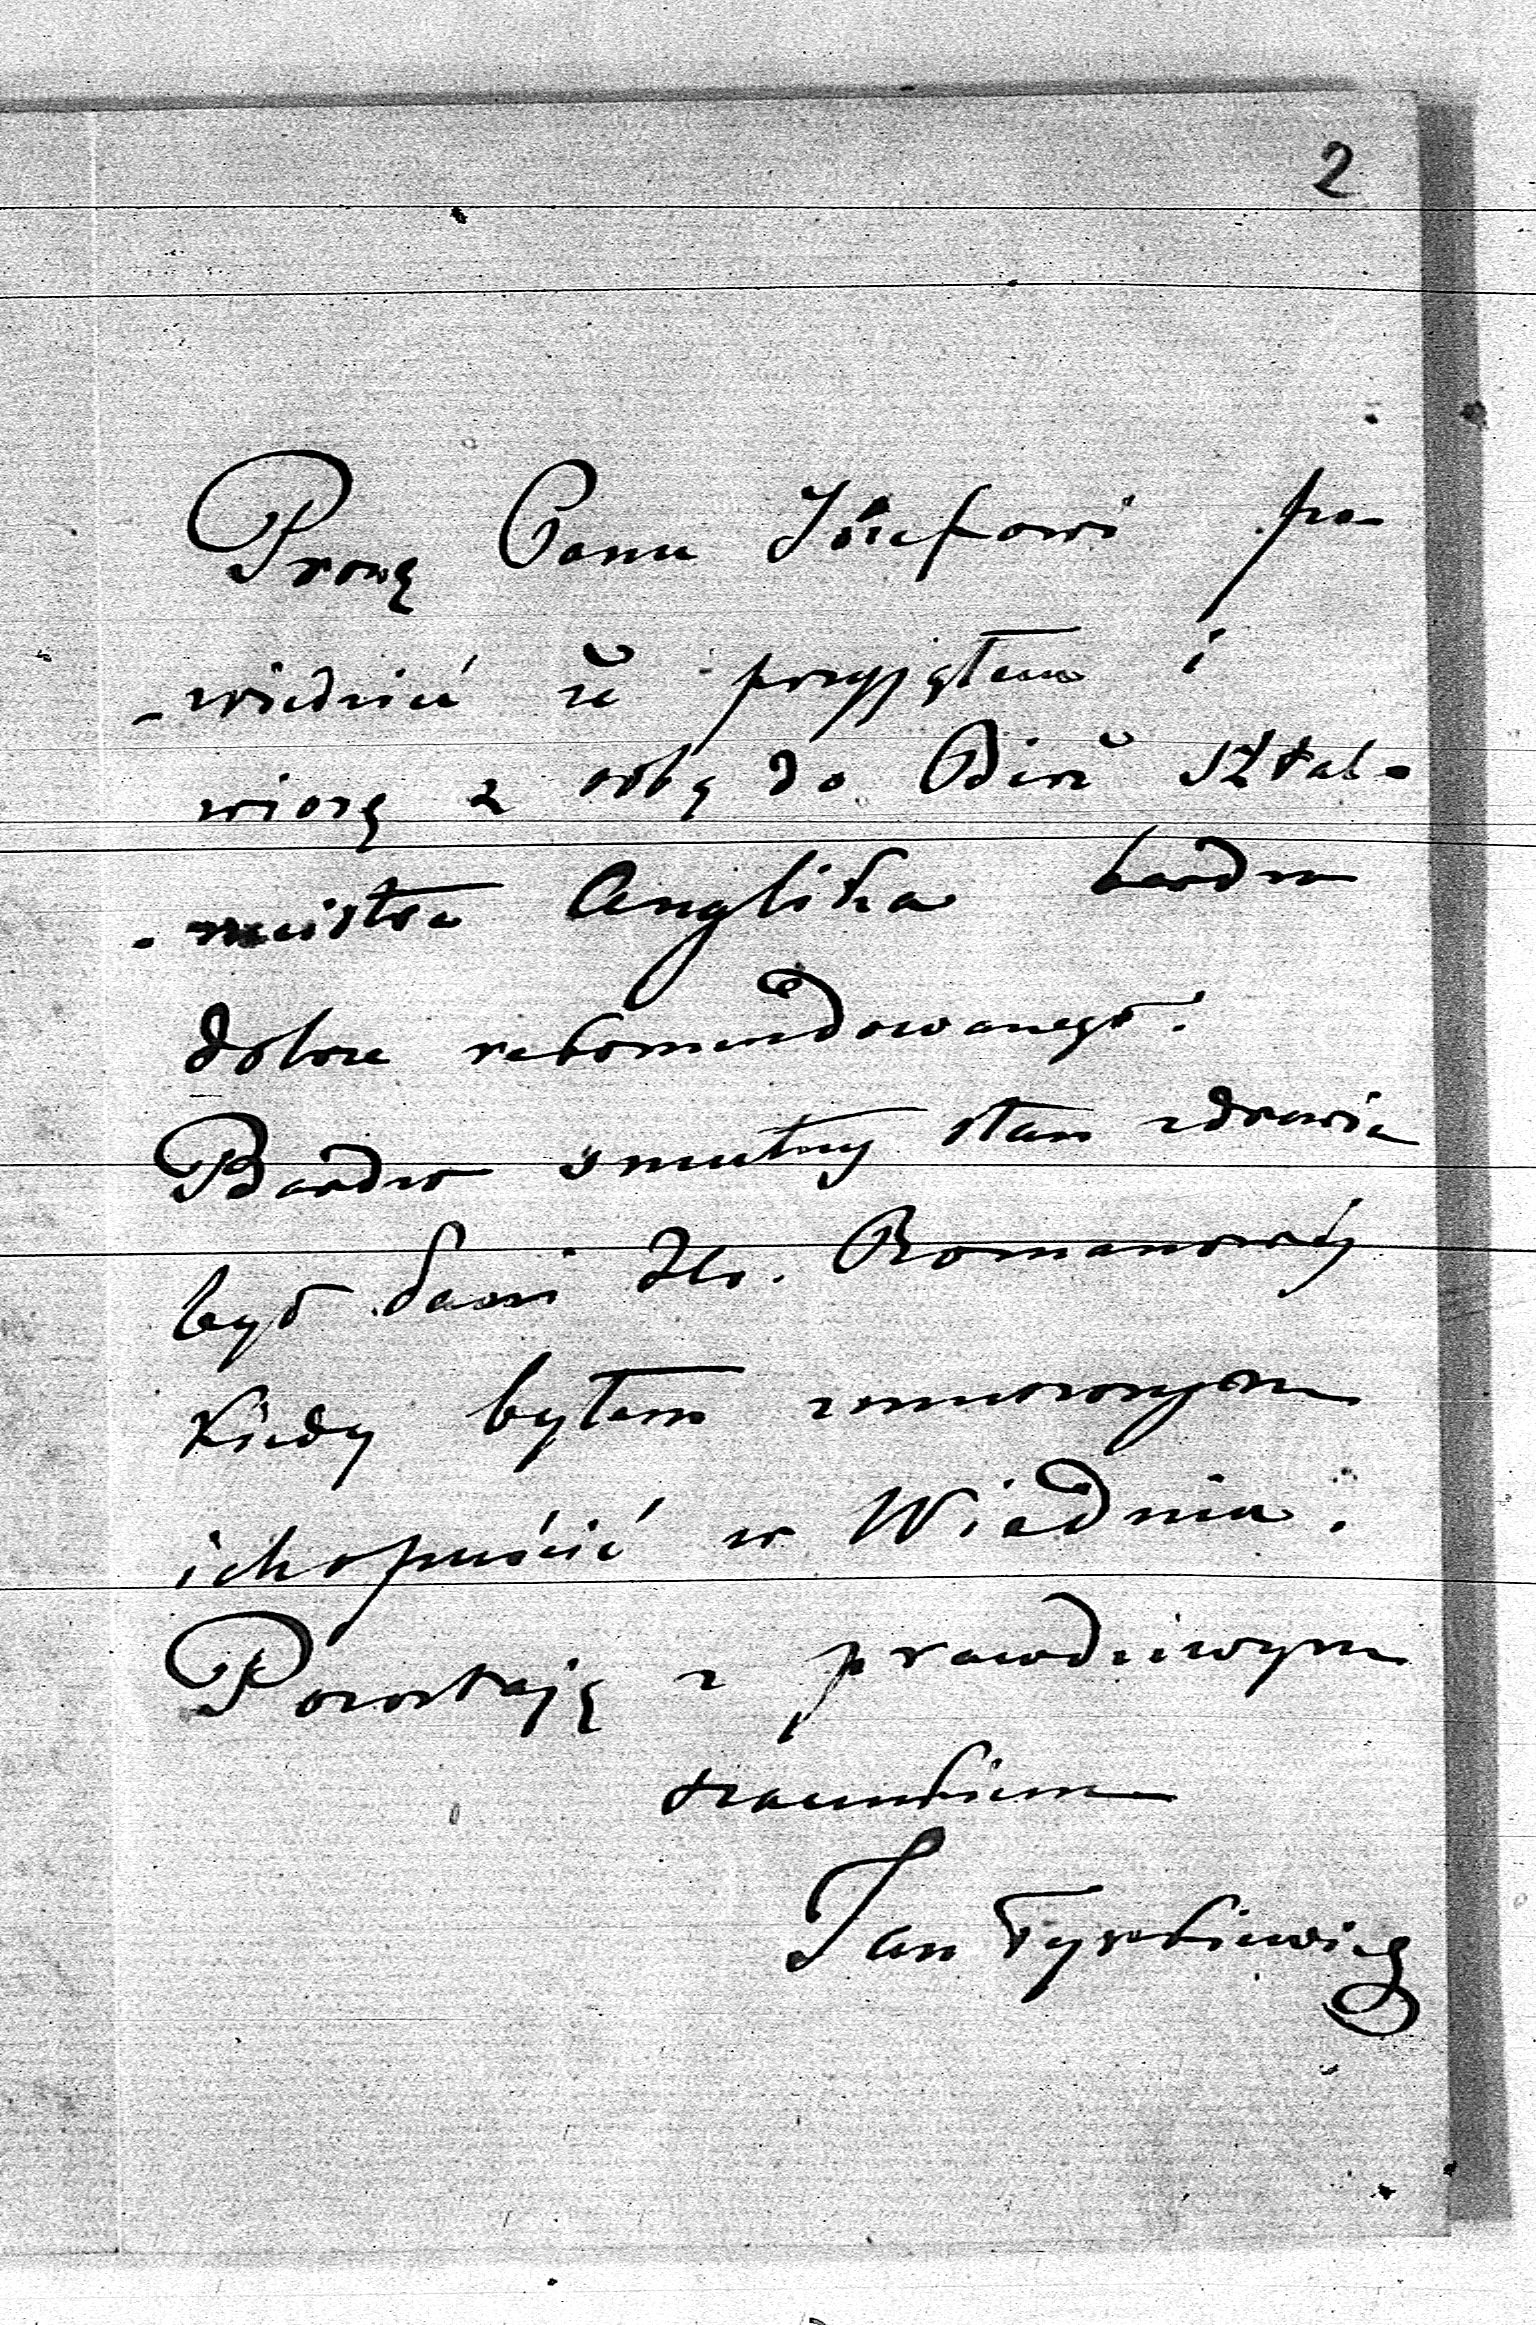 2
Proszę Panu Józefowi po-
-wiedzieć że przyjąłem i
wiozę z sobą do Birż Sztal-
-meistra Anglika bardzo
dobrze rekomendowanego.
Bardzo smutny stan zdrowia
był Pani Hr. Romanowéj
Kiedy byłem zmuszonym
ich opuścić w Wiedniu.
Pozostaję z prawdziwym
szacunkiem
Jan Tyszkiewicz